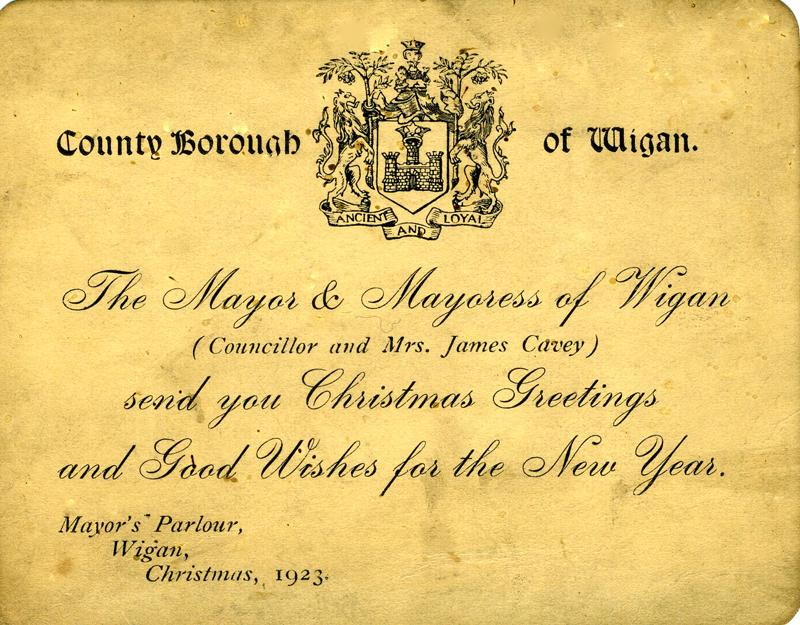 County Borough of Wigan.
ANCIENT AND LOYAL
The Mayor & Mayoress of Wigan
(Councillor and Mrs. James Cavey)
send you Christmas Greetings
and Good Wishes for the New Year.
Mayor's Parlour,
Wigan,
Christmas, 1923.